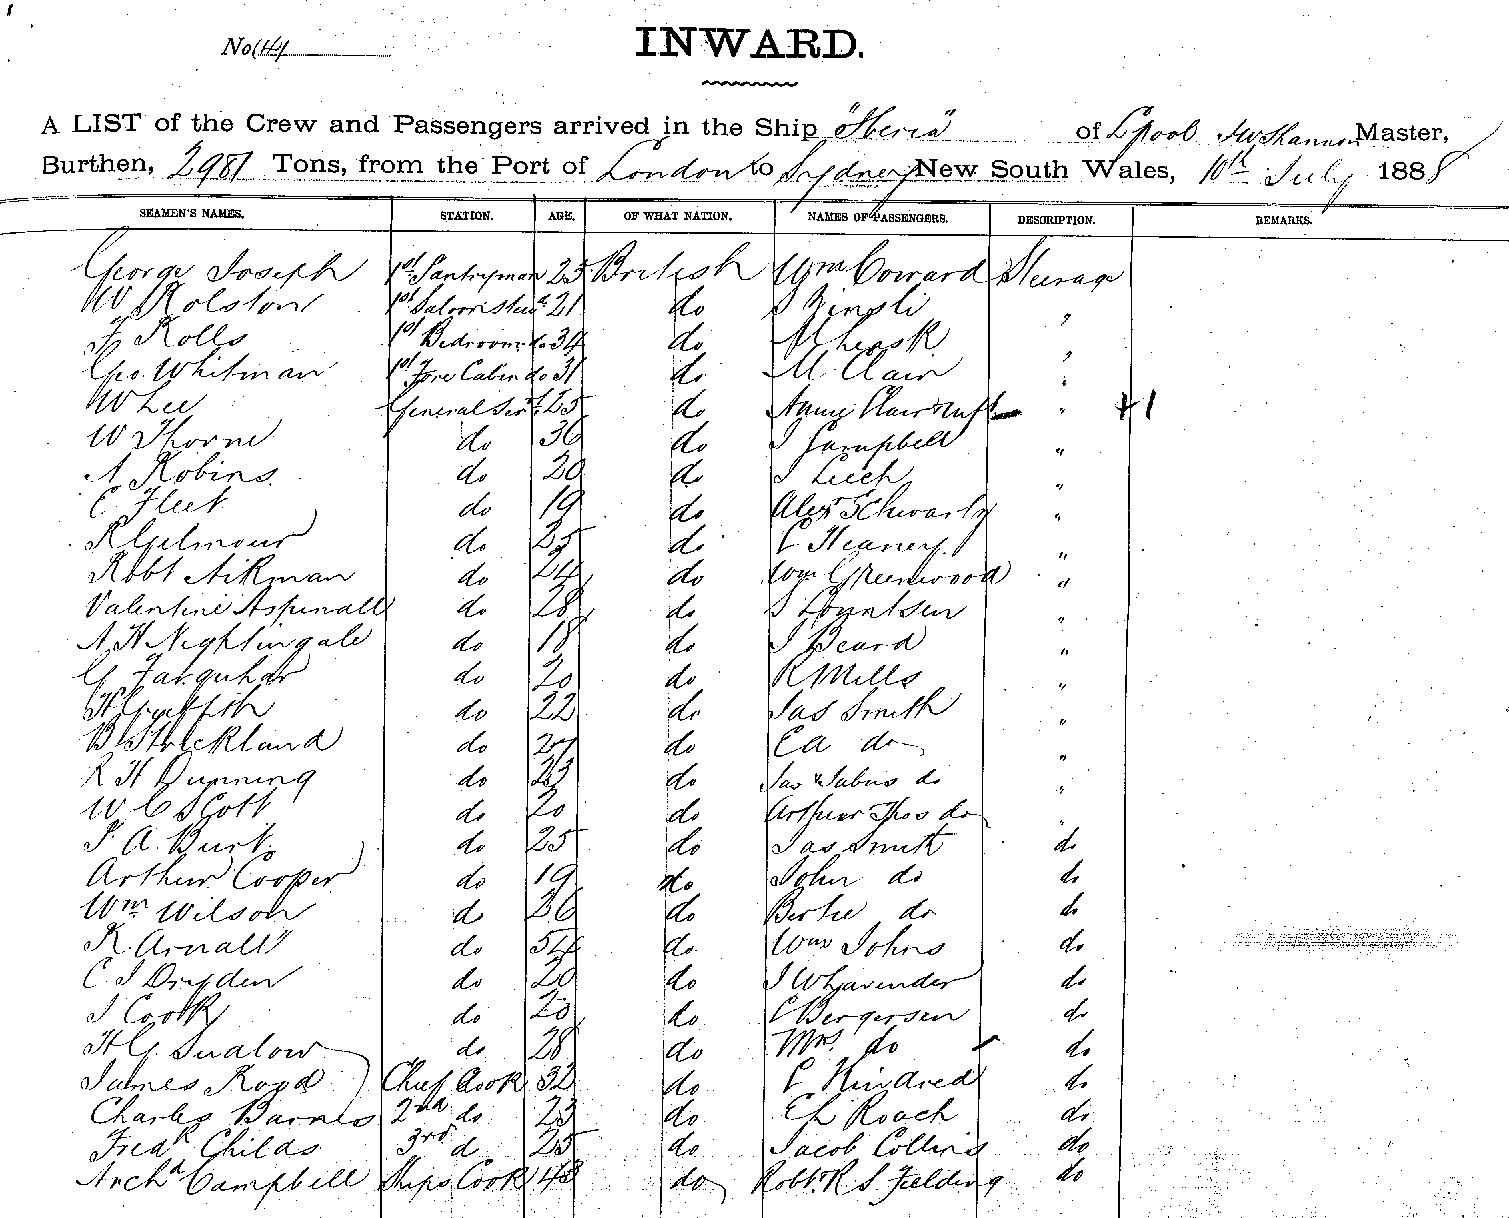 No (4)
INWARD.
A LIST of the Crew and Passengers arrived in the Ship "Iberia" of Lpool J W Shannon Master,
Burthen, 2981 Tons, from the Port of London to Sydney New South Wales, 10th July 1888
SEAMEN'S NAMES. STATION. AGE. OF WHAT NATION. NAMES OF PASSENGERS. DESCRIPTION. REMARKS.
George Joseph 1st Pantryman 25 British Wm Coward Steerage
W Rolston 1st Saloon Stewd 21 do S "
F Rolls 1st Bedroom do 34 do M "
Geo. Whitman 1st Fore Cabin do 31 do M Clair "
W Lee General Servt 25 do Annie Clair & Inft " +1
W Thorne do 36 do J Campbell "
A Robins do 20 do J Leech "
C Fleet do 19 do Alex Schwartz "
R Gilmour do 25 do C Heaney "
Robt Aikman do 24 do Wm Greenwood "
Valentine Aspinall do 28 do S "
A H Nightingale do 18 do J Beard "
G Farquhar do 20 do R Mills "
H Griffith do 22 do Jas Smith "
B Strickland do do Ea do "
R H Dunning do 23 do Jas do "
W C Scott do 20 do Arthur Thos do "
T. A. Burt do 25 do Jas Smith do
Arthur Cooper do 19 do John do do
Wm Wilson do 36 do Bertie do do
R. Arnall do 54 do Wm Johns do
C J Dryden do 20 do J W Lavender do
J Cook do 20 do C Bergersen do
H G Sualow do 28 do Mrs. do do
James Royd Chief Cook 32 do C Kindred do
Charles Barnes 2nd do 23 do Eh Roach do
Fredk Childs 3rd d 25 do Jacob Collins do
Archd Campbell Ships Cook 43 do Robt. R S Fielding do